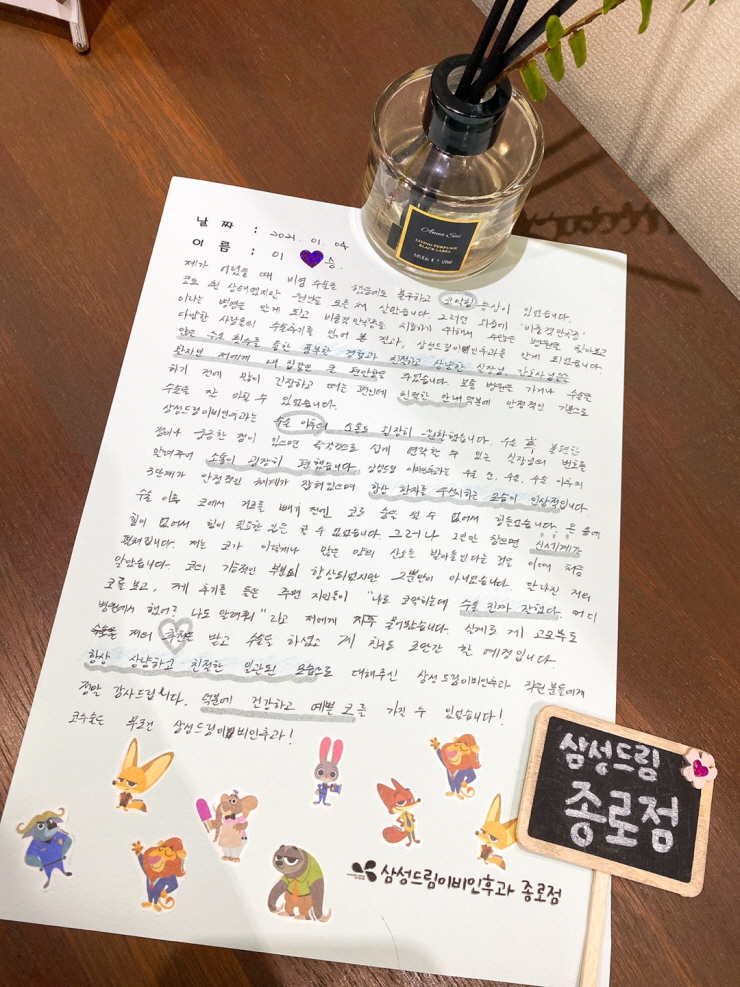 Anna Sui
LIVING PERFUME
BLACK LABEL
날 짜 : 2021. 01. 04
이 름 : 이 승.
제가 어렸을 때 비염 수술을 했음에도 불구하고 코막힘 증상이 있었습니다.
코도 된 상태였지만 원인을 모른채 살았습니다. 그러던 와중에 '비중격 만곡증'
이라는 병명을 알게 되고 비중격 만곡증을 치료하기 위해서 수많은 병원을 찾아보고
다양한 사람들의 수술후기를 읽어 본 결과, 삼성드림이비인후과를 알게 되었습니다.
많은 수술 횟수를 통한 풍부한 경험과 친절하고 상냥한 실장님, 간호사님들은
환자인 저에게 내 집같은 큰 편안함을 주었습니다. 보통 병원을 가거나 수술을
하기 전에 많이 긴장하고 떠는 편인데 친절한 안내 덕분에 안정적인 기분으로
수술을 잘 마칠 수 있었습니다.
삼성드림이비인후과는 수술 이후의 소통도 굉장히 원활했습니다. 수술 후 불편한
점이나 궁금한 점이 있으면 즉각적으로 쉽게 연락할 수 있는 실장님의 번호를
알려주며 소통이 굉장히 편했습니다. 삼성드림 이비인후과는 수술 전, 수술, 수술 이후까지
3단계가 안정적인 체계가 잡혀있으며 항상 환자를 우선시하는 모습이 인상적입니다.
수술 이후 코에서 거즈를 빼기 전엔 코로 숨을 쉴 수 없어서 힘들었습니다. 온 몸에
힘이 없어서 힘이 필요한 일은 할 수 없었습니다. 그러나 그것만 참으면 신세계가
펼쳐집니다. 저는 코가 이렇게나 많은 양의 산소를 받아들인다는 것을 이때 처음
알았습니다. 코의 기능적인 부분이 향상되었지만 그뿐만이 아니었습니다. 달라진 저의
코를 보고, 제 후기를 들은 주변 지인들이 "나도 코막히는데 수술 진짜 잘했다. 어디
병원에서 했어? 나도 알려줘" 라고 저에게 자주 물어봤습니다. 실제로 제 고모부도
저의 추천을 받고 수술을 하셨고 제 친구도 조만간 할 예정입니다.
항상 상냥하고 친절한 일관된 모습으로 대해주신 삼성드림이비인후과 직원분들에게
정말 감사드립니다. 덕분에 건강하고 예쁜 코를 가질 수 있었습니다!
코수술은 무조건 삼성드림이비인후과!
삼성드림이비인후과 종로점
삼성드림
종로점